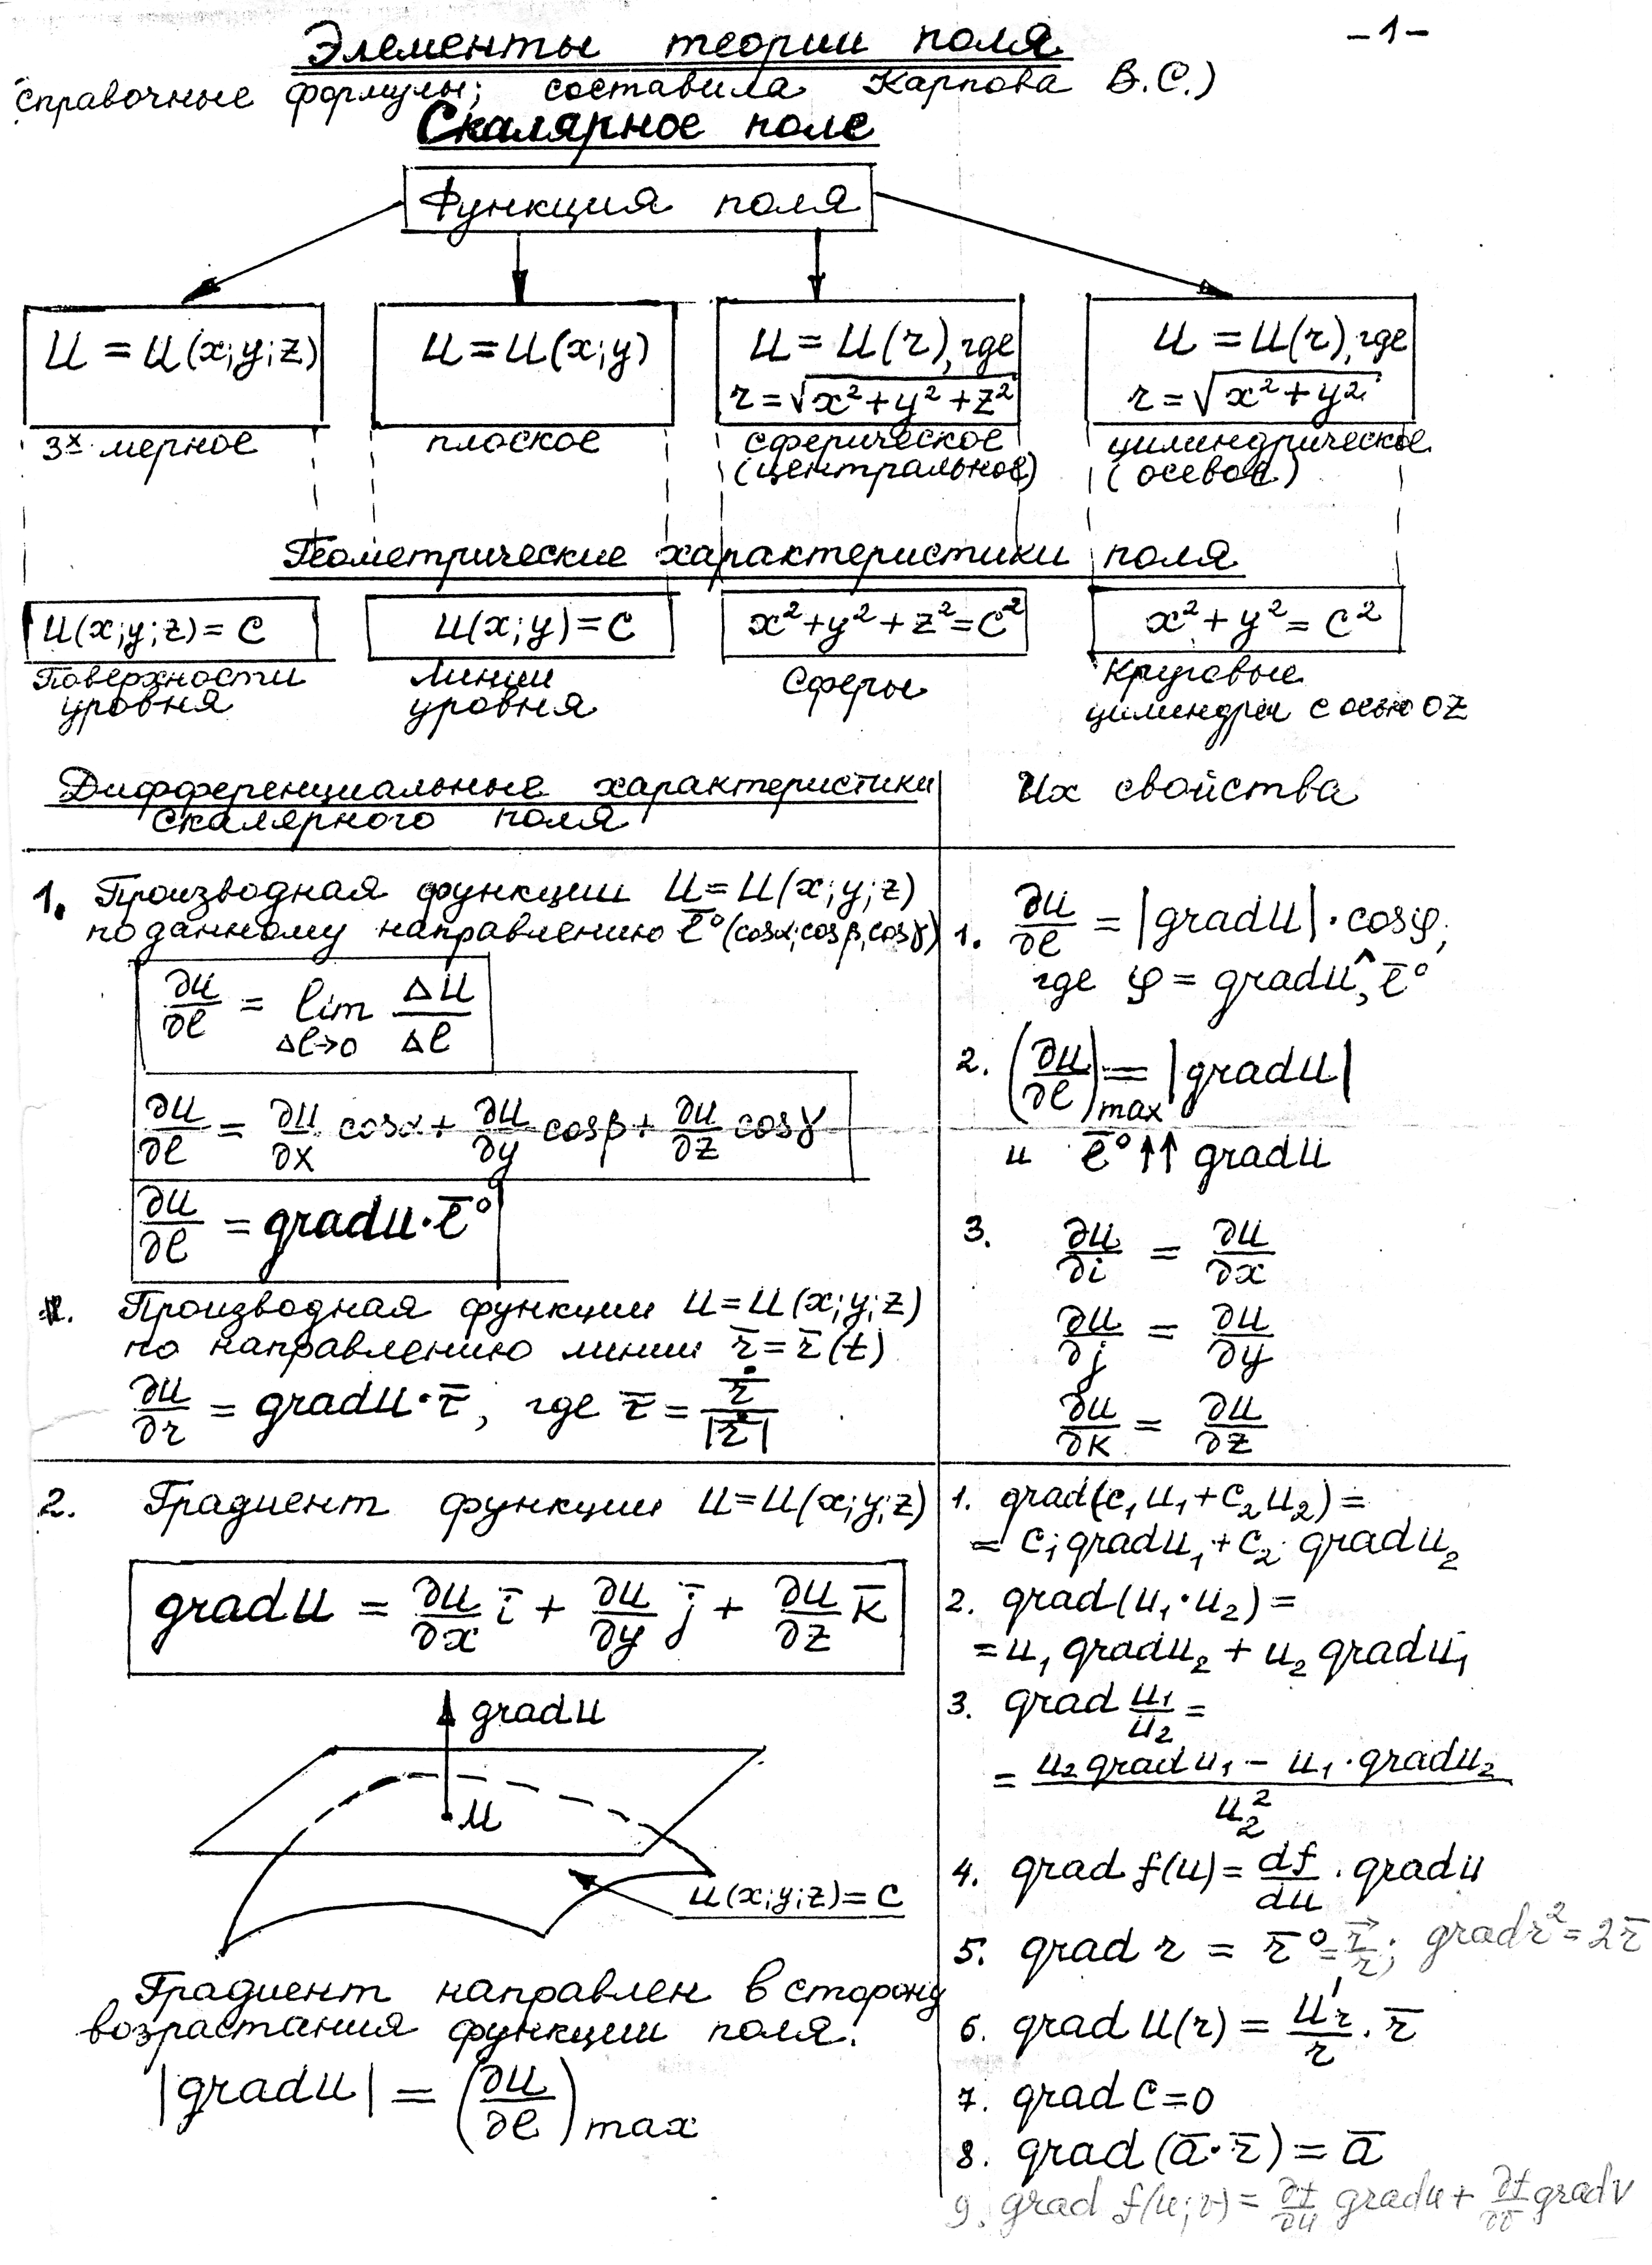 Элементы теории поля
-1-
справочные формулы; составила Карпова В.С.)
Скалярное поле
Функция поля
U = U(x;y;z)
U = U(x;y)
U = U(r), где
r = √(x²+y²+z²)
U = U(r), где
r = √(x²+y²)
3х мерное
плоское
сферическое
(центральное)
цилиндрическое
(осевое)
Геометрические характеристики поля
U(x;y;z) = C
U(x;y) = C
x²+y²+z² = C²
x²+y² = C²
Поверхности
уровня
Линии
уровня
Сферы
Круговые
цилиндры с осью OZ
Дифференциальные характеристики
скалярного поля
Их свойства
1. Производная функции U = U(x;y;z)
по данному направлению ē°(cosα; cosβ, cosγ)
∂u/∂ℓ = lim Δℓ→0 Δu/Δℓ
∂u/∂ℓ = ∂u/∂x cosα + ∂u/∂y cosβ + ∂u/∂z cosγ
∂u/∂ℓ = gradu · ℓ̄°
Производная функции U = U(x;y;z)
по направлению линии r̄ = r̄(t)
∂u/∂r = gradu · τ̄, где τ̄ = ṙ̄/|ṙ̄|
1. ∂u/∂ℓ = |gradu| · cosφ,
где φ = gradu^, ℓ̄°
2. (∂u/∂ℓ)max = |gradu|
и ℓ̄° ↑↑ gradu
3. ∂u/∂i = ∂u/∂x
∂u/∂j = ∂u/∂y
∂u/∂k = ∂u/∂z
2. Градиент функции U = U(x;y;z)
gradu = ∂u/∂x ī + ∂u/∂y j̄ + ∂u/∂z k̄
gradu
M
U(x;y;z) = C
Градиент направлен в сторону
возрастания функции поля.
|gradu| = (∂u/∂ℓ)max
1. grad(c₁u₁ + c₂u₂) =
= c₁gradu₁ + c₂ gradu₂
2. grad(u₁·u₂) =
= u₁ gradu₂ + u₂ gradu₁
3. grad u₁/u₂ =
= (u₂ gradu₁ − u₁·gradu₂)/u₂²
4. grad f(u) = df/du · gradu
5. grad r = r̄° = r⃗/r; grad r² = 2r̄
6. grad u(r) = u'r/r · r̄
7. grad C = 0
8. grad(ā·r̄) = ā
9. grad f(u;v) = ∂f/∂u gradu + ∂f/∂v gradv